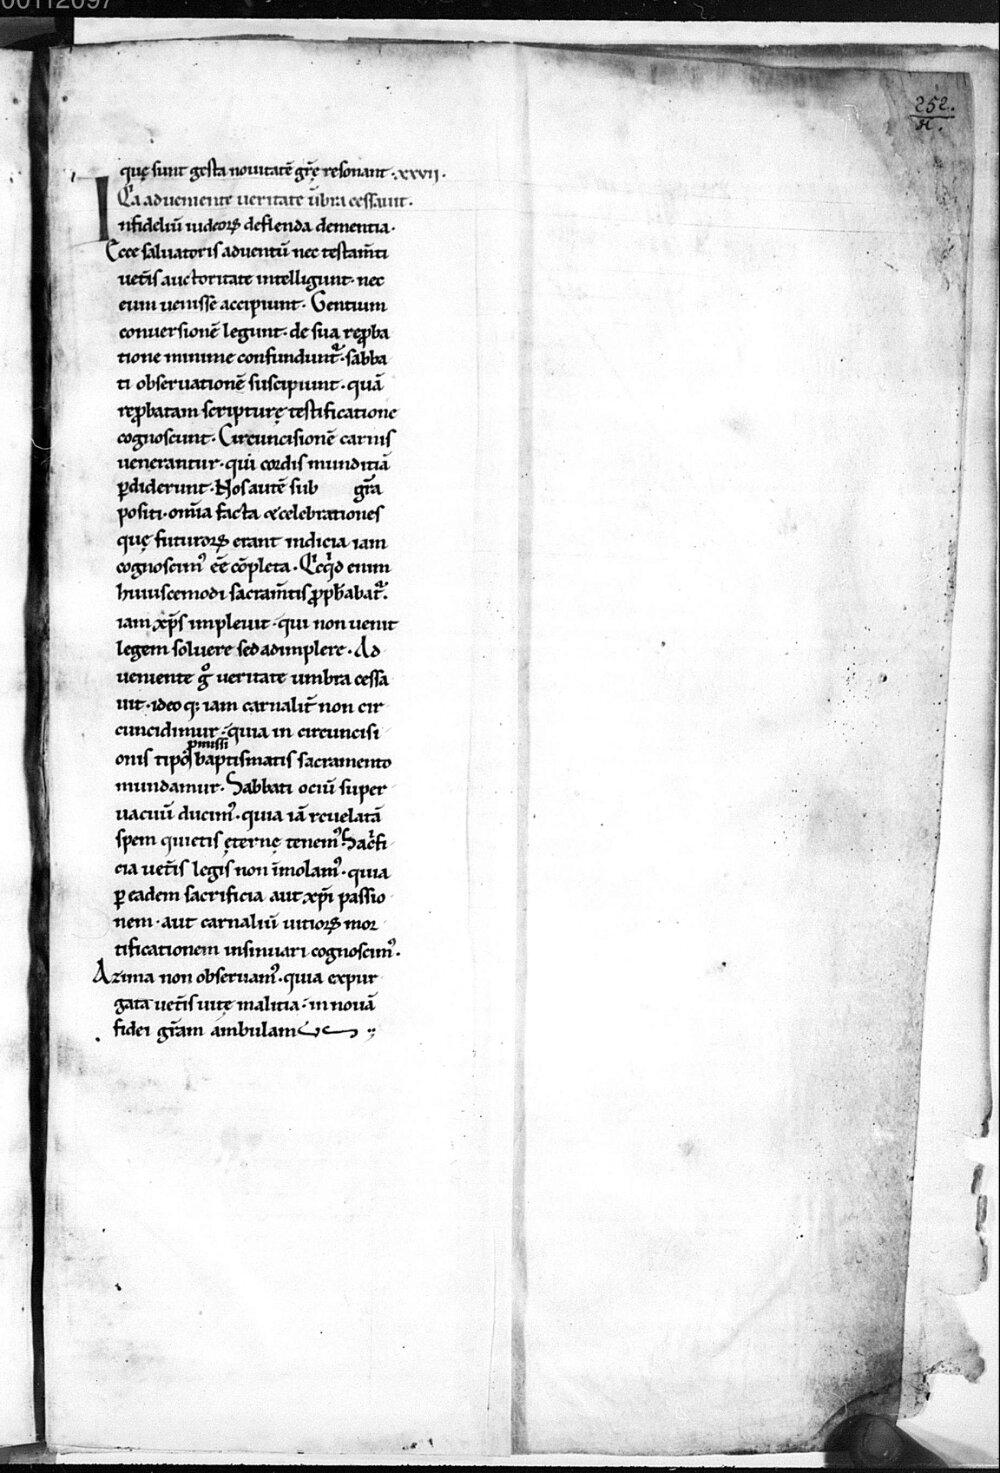 00112097
252.
quę sunt gesta nouitatē gr̄ę resonant .xxvii.
Qͥa adueniente ueritate ūbra cessauit.
Infideliū iudeoꝝ deflenda dementia.
Ecce saluatoris aduentū nec testam̄ti
uet̄is auctoritate intelligunt. nec
eum uenisse accipiunt. Gentium
conuersionē legunt. de sua reꝓba
tione minime confundunt᷑. sabba
ti obseruationē suscipiunt. quā
reꝓbatam scripturę testificatione
cognoscunt. Circuncisionē carnis
uenerantur. qui cordis munditiā
ꝑdiderunt. Nos autē sub gr̄a
positi. om̄ia facta & celebrationes
quę futuroꝝ erant indicia iam
cognoscimꝰ ēē cōpleta. Qͥcqͥd enim
huiuscemodi sacram̄tis ꝓph̄abat᷑.
iam xp̄s impleuit. qui non uenit
legem soluere sed adimplere. Ad
ueniente gͦ ueritate umbra cessa
uit. ideoq; iam carnalit̄ non cir
cuncidimur. quia in circuncisi
onis tipo p̄missi baptismatis sacramento
mundamur. Sabbati ociū super
uacuū ducimꝰ. quia iā reuelatā
spem quietis ęternę tenemꝰ. Sacͥfi
cia uet̄is legis non īmolamꝰ. quia
ꝑ eadem sacrificia aut xp̄i passio
nem. aut carnaliū uitioꝝ mor
tificationem insinuari cognoscimꝰ.
Azima non obseruamꝰ. quia expur
gata uet̄is uitę malitia. in nouā
fidei gr̄am ambulam